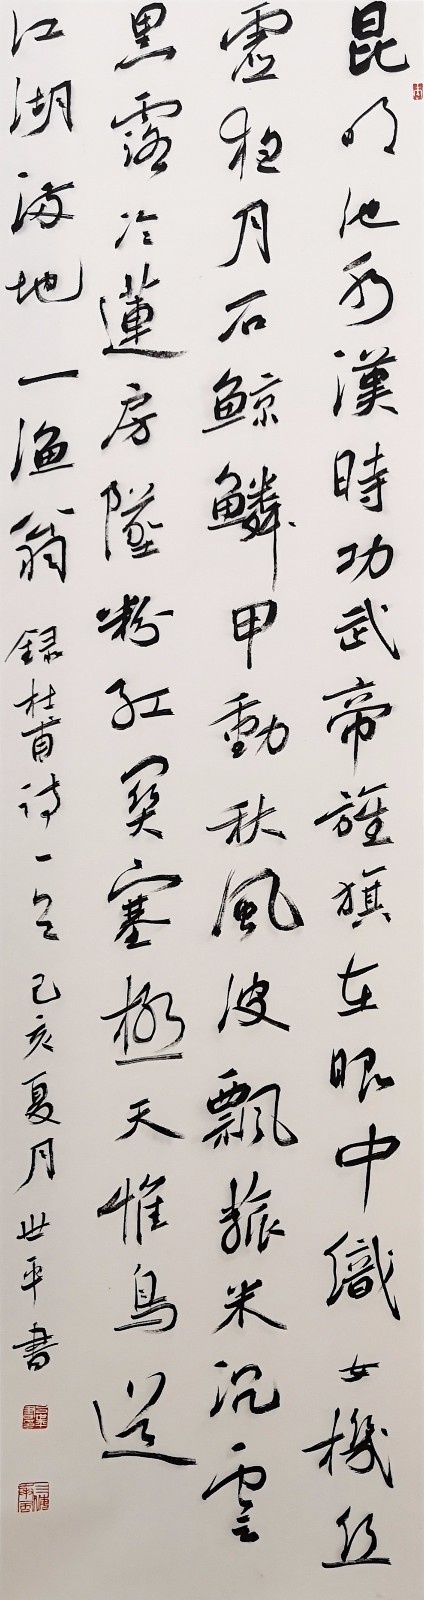 昆明池水漢時功武帝旌旗在眼中織女機絲
虛夜月石鯨鱗甲動秋風波飄菰米沉雲
黑露冷蓮房墜粉紅関塞極天惟鳥道
江湖滿地一漁翁 録杜甫诗一首 己亥夏月 世平書